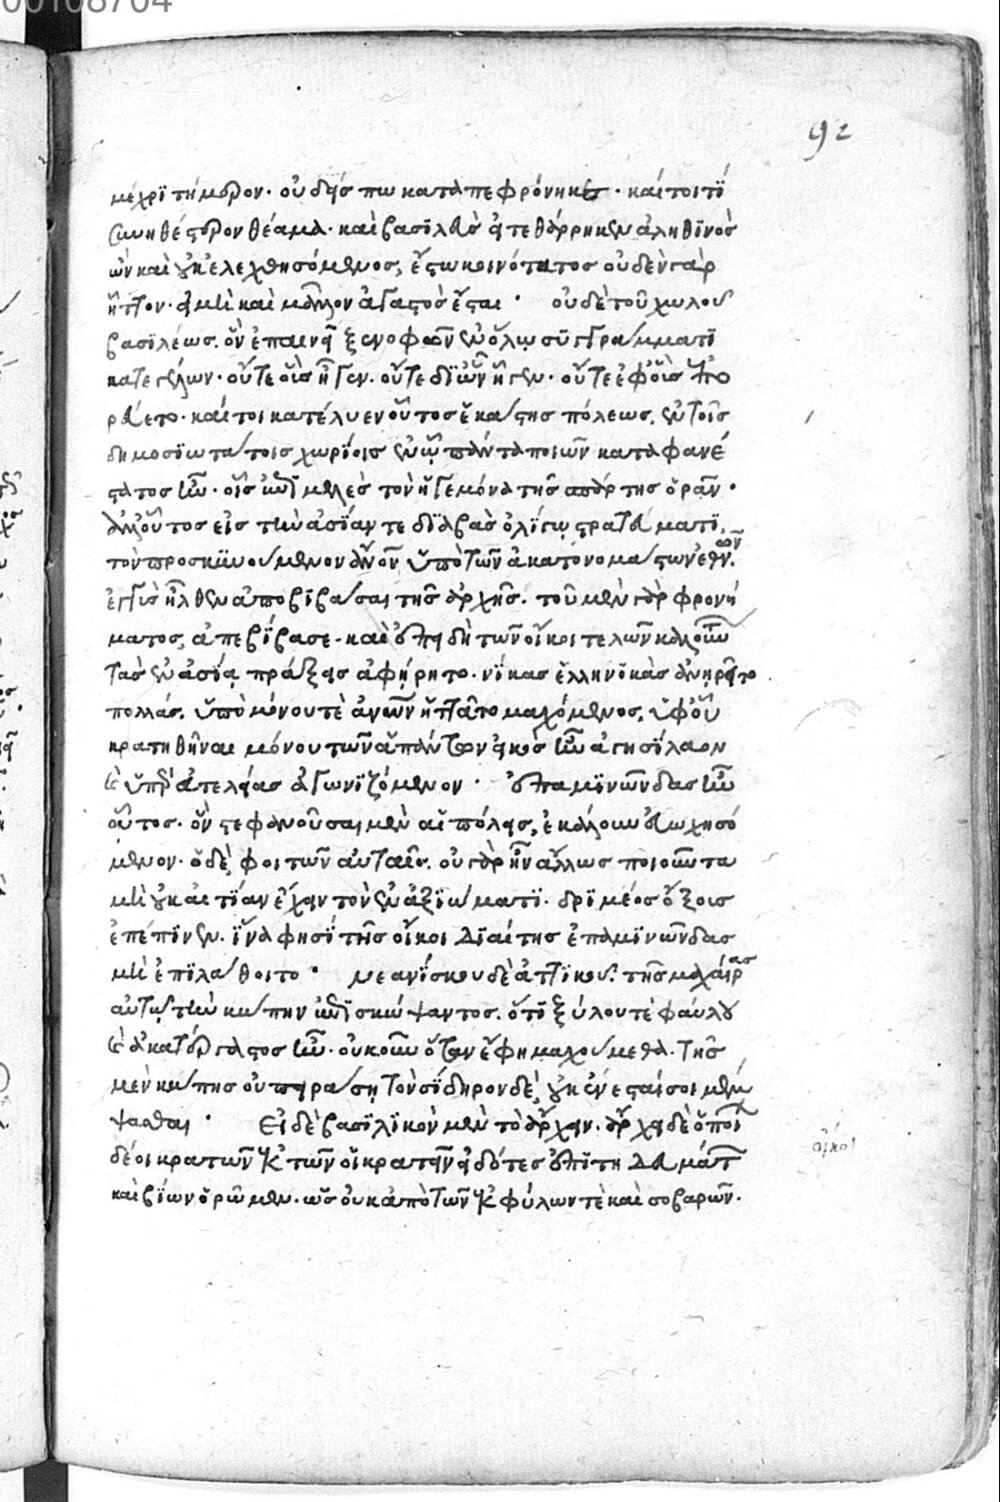 92
μέχρι τήμερον. οὐδείς πω καταπεφρόνηκε. καίτοι τί
συνηθέστερον θέαμα. καὶ βασιλεὺς εἰ τεθάρρηκεν ἀληθινὸς
ὢν καὶ οὐκ ἐλεγχθησόμενος, ἔστω κοινότατος οὐδὲν γὰρ
ἧττον. εἰ μὴ καὶ μᾶλλον ἀγαστὸς ἔσται. οὐδὲ τοῦ χωλοῦ
βασιλέως. ὃν ἐπαινεῖ ξενοφῶν ἐν ὅλῳ συγγράμματι
κατεγέλων. οὔτε οἷς ἦγεν. οὔτε δι' ὧν ᾔεν. οὔτε ἐφ' οἷς ἐπο
ρεύετο. καίτοι κατέλυεν οὗτος ἑκάστης πόλεως, ἐν τοῖς
δημοσιωτάτοις χωρίοις ἐν ᾧ πάντα ποιῶν καταφανέ
στατος ἦν. οἷς ἐπιμελὲς τὸν ἡγεμόνα τῆς σπάρτης ὁρᾶν.
ἀλλ' οὗτος εἰς τὴν ἀσίαν τε διαβὰς ὀλίγῳ στρατεύματι,
τὸν προσκυνούμενον ὑπὸ τῶν ἀκατονομάστων ἐθνῶν.
ἐγγὺς ἦλθεν ἀποβιβάσαι τῆς ἀρχῆς. τοῦ μὲν γὰρ φρονή
ματος, ἀπεβίβασε. καὶ ἐπειδὴ τῶν οἴκοι τελῶν καλούντων
τὰς ἐν ἀσίᾳ πράξεις ἀφῄρητο. νίκας ἑλληνικὰς ἀνῃρεῖτο
πολλάς. ὑπὸ μόνου τὲ ἀνθρώπων ἡττᾶτο μαχόμενος, ὑφ' οὗ
κρατηθῆναι μόνου τῶν ἁπάντων εἰκὸς ἦν ἀγησίλαον
καὶ ὑπὲρ ἀτελείας ἀγωνιζόμενον. ἐπαμινώνδας ἦν
οὗτος. ὃν στεφανοῦσαι μὲν αἱ πόλεις, ἐκάλουν εὐωχησό
μενον. ὁ δὲ, φοιτῶν αὐταῖς. οὐ γὰρ ἦν ἄλλως ποιοῦντα
μὴ οὐκ αἰτίαν ἔχειν τὸν ἐν ἀξιώματι. δριμέος ὄξους
ἐπέπινεν. ἵνα φησὶ τῆς οἴκοι διαίτης ἐπαμινώνδας
μὴ ἐπιλάθοιτο. νεανίσκου δὲ ἀττικοῦ. τῆς μαχαίρας
αὐτῷ τὴν κώπην ἐπισκώψαντος. ὅτι ξύλου τὲ φαύλου
καὶ ἀκατέργαστος ἦν. οὐκοῦν ὅταν ἔφη μαχούμεθα. τῆς
μὲν κώπης οὐ πειράσῃ τὸν σίδηρον δὲ, οὐκ ἐνέσταί σοι μέμ
ψασθαι. Εἰ δὲ βασιλικὸν μὲν τὸ ἄρχειν. ἄρχει δὲ ὁποῖοι
δέοι κρατῶν καὶ τῶν οἳ κρατεῖν εἰδότες ἐπιτηδευμάτων
καὶ βίων ὁρῶμεν. ὡς οὐκ ἀπὸ τῶν ἐκφύλων τὲ καὶ σοβαρῶν.